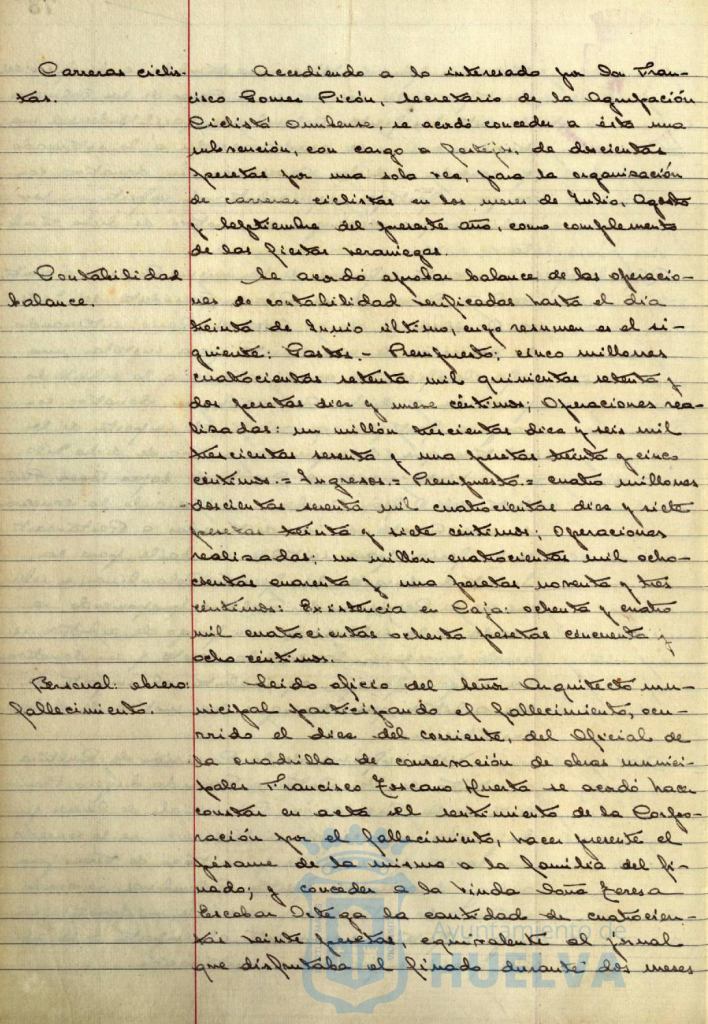 Carreras ciclis-
tas.
Accediendo a lo interesado por don Fran-
cisco Gomez Picón, Secretario de la Agrupación
Ciclista Onubense, se acordó conceder a ésta una
subvención, con cargo a festejos, de doscientas
pesetas por una sola vez, para la organización
de carreras ciclistas en los meses de Julio, Agosto
y Septiembre del presente año, como complemento
de las fiestas veraniegas.
Contabilidad
balance.
Se acordó aprobar balance de las operacio-
nes de contabilidad verificadas hasta el dia
treinta de Junio último, cuyo resumen es el si-
guiente: Gastos.- Presupuesto; cinco millones
cuatrocientas setenta mil quinientas setenta y
dos pesetas diez y nueve céntimos; Operaciones rea-
lizadas: un millón trescientas diez y seis mil
trescientas sesenta y una pesetas treinta y cinco
céntimos.= Ingresos.= Presupuesto.= cuatro millones
doscientas sesenta mil cuatrocientas diez y siete
pesetas treinta y siete céntimos; Operaciones
realizadas; un millón cuatrocientas mil ocho-
cientas cuarenta y una pesetas noventa y tres
céntimos: Existencia en Caja: ochenta y cuatro
mil cuatrocientas ochenta pesetas cincuenta y
ocho céntimos.
Personal: obrero:
fallecimiento.
Leido oficio del Señor Arquitecto mu-
nicipal participando el fallecimiento, ocu-
rrido el diez del corriente, del Oficial de
la cuadrilla de conservación de obras munici-
pales Francisco Toscano Huerta se acordó hacer
constar en acta el sentimiento de la Corpo-
ración por el fallecimiento, hacer presente el
pésame de la misma a la familia del fi-
nado; y conceder a la viuda Doña Teresa
Escobar Ortega la cantidad de cuatrocien-
tas veinte pesetas, equivalente al jornal
que disfrutaba el finado durante dos meses
Ayuntamiento de
HUELVA